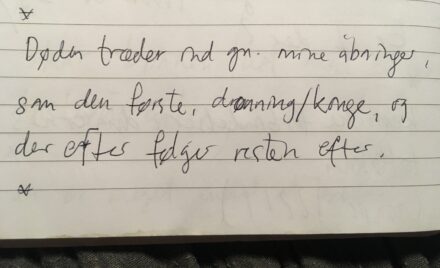 Døden træder ind gn. mine åbninger,
som den første, dronning/konge, og
der efter følger resten efter.